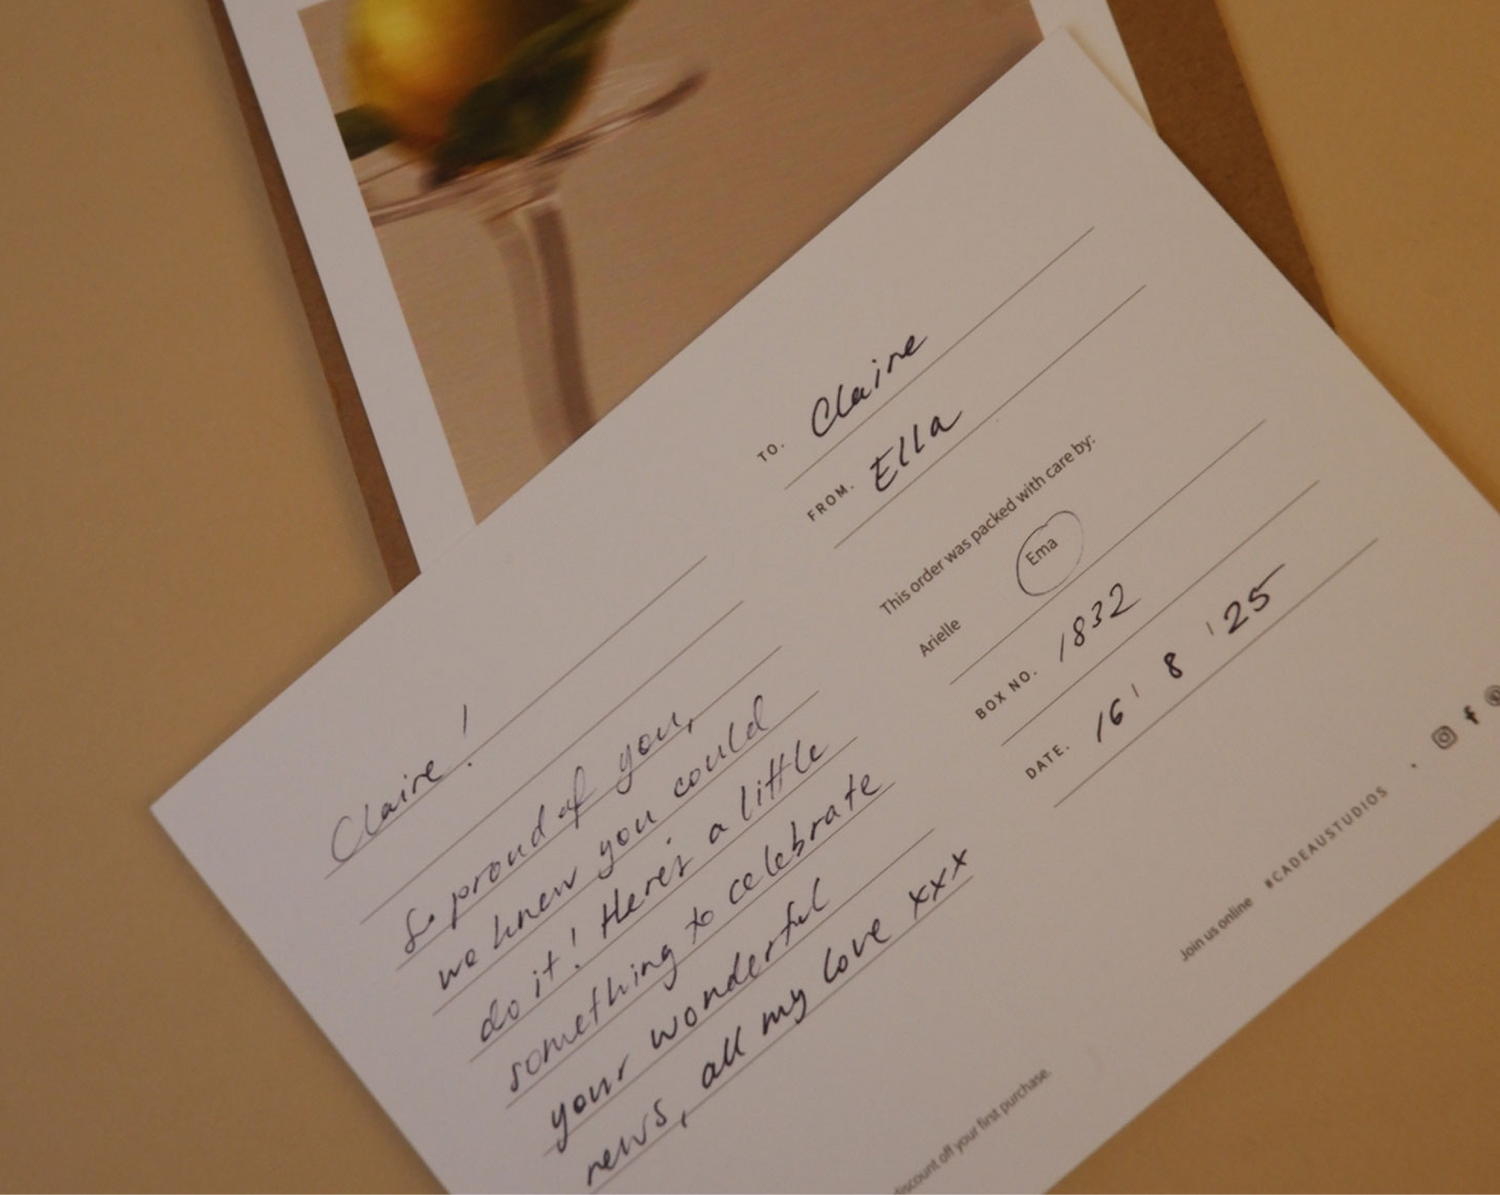 TO. Claire
FROM. Ella
This order was packed with care by:
Arielle Ema
BOX NO. 1832
DATE. 16 / 8 / 25
Claire!
So proud of you,
we knew you could
do it! Here's a little
something to celebrate
your wonderful
news, all my love xxx
Join us online #CADEAUSTUDIOS
discount off your first purchase.